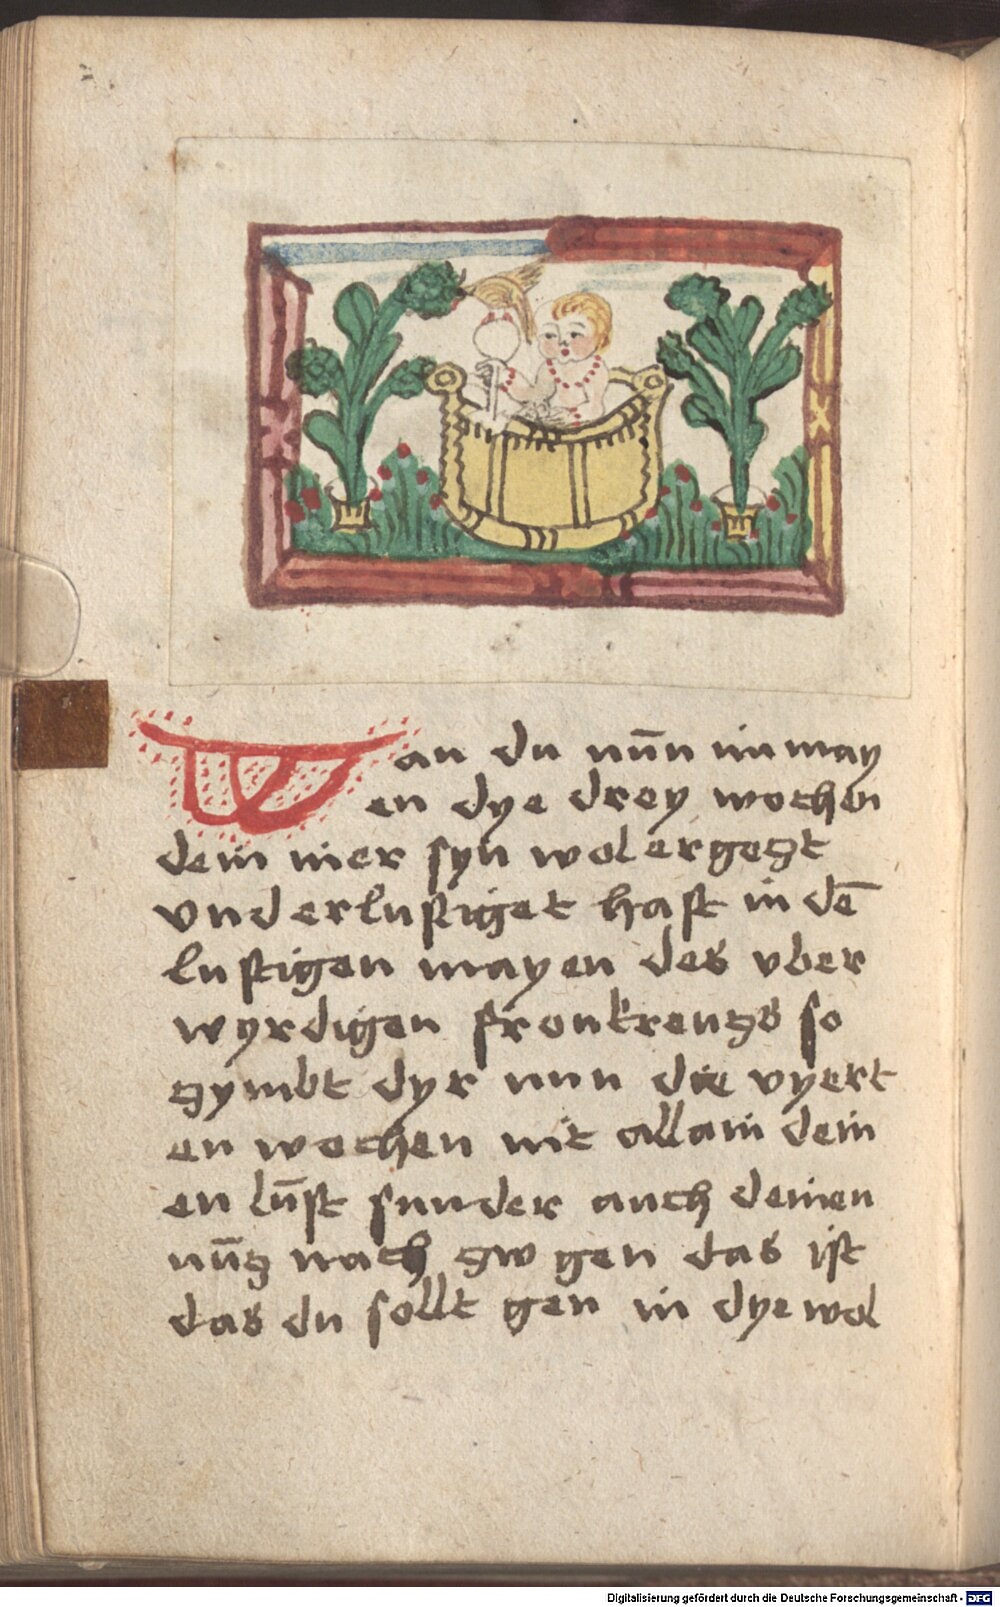 Wan du nūn im may
en dye drey wochen
dein mer syn wol ergetzt
vnd erlustiget hast in dē
lustigen mayen des vber
wyrdigen fronkreutzs so
zymbt dyr nun die vyert
en wochen nit allain dein
en lūst sunder auch deinen
nūtz nach zw gen das ist
das du sollt gen in dye wol
Digitalisierung gefördert durch die Deutsche Forschungsgemeinschaft - DFG